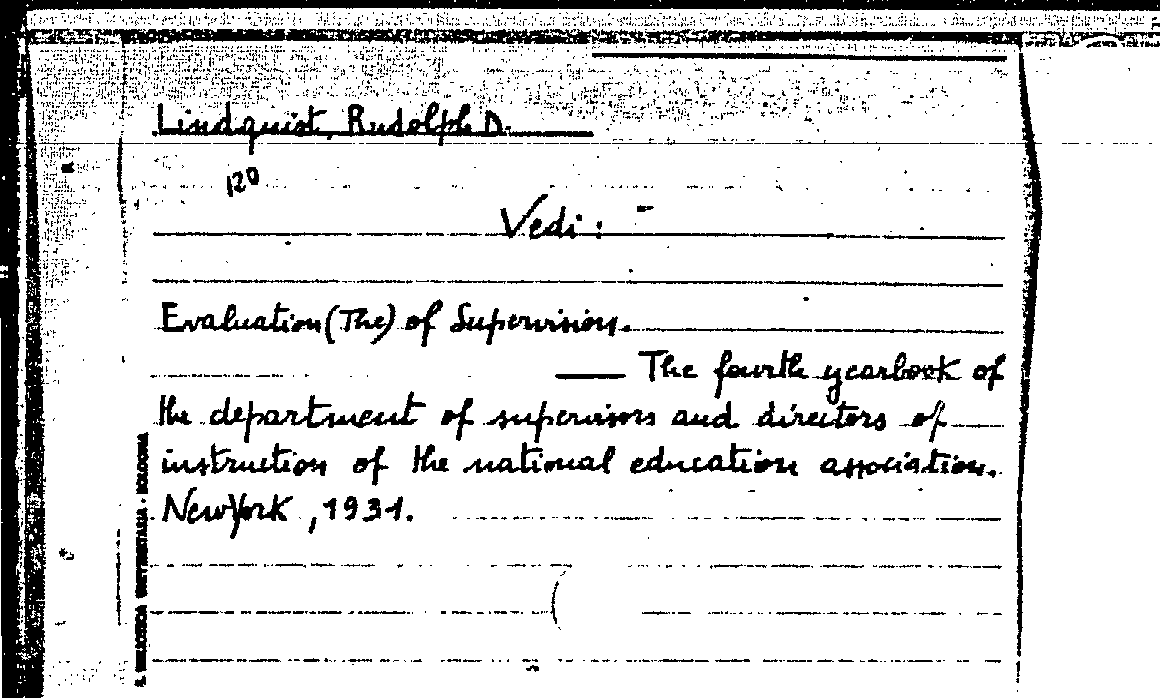 Lindquist, Rudolph D.
120
Vedi :
Evaluation (The) of Supervision.
— The fourth yearbook of
the department of supervisors and directors of
instruction of the national education association.
New York, 1931.
BIBLIOTECA UNIVERSITARIA - BOLOGNA